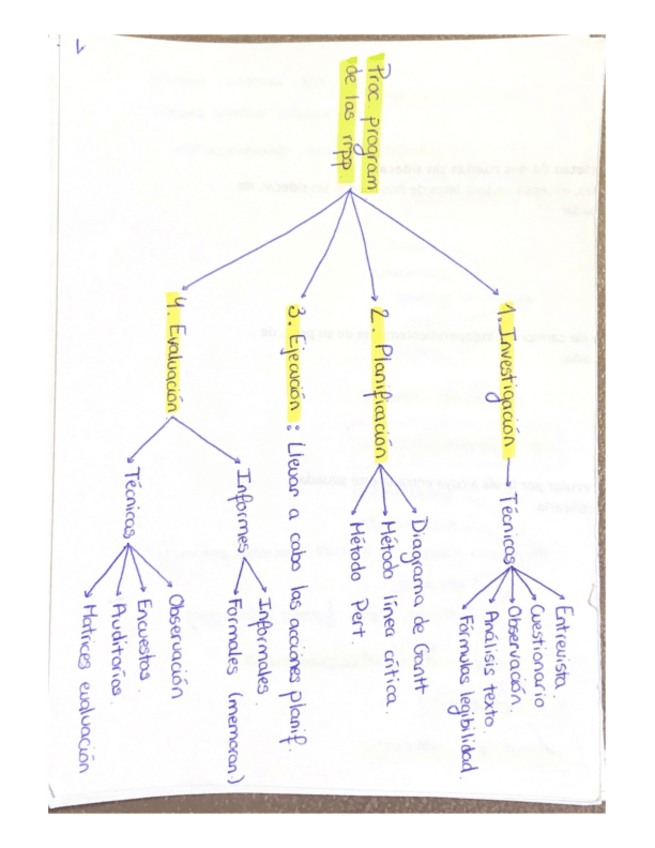 Proc. program
de las rrpp.
1. Investigación
Técnicas
Entrevista.
Cuestionario
Observación.
Análisis texto.
Fórmulas legibilidad.
2. Planificación
Diagrama de Gantt
Método línea crítica.
Método Pert.
3. Ejecución: Llevar a cabo las acciones planif.
4. Evaluación
Informes
Informales.
Formales (memoran.)
Técnicas
Observación
Encuestas.
Auditorías.
Matrices evaluación